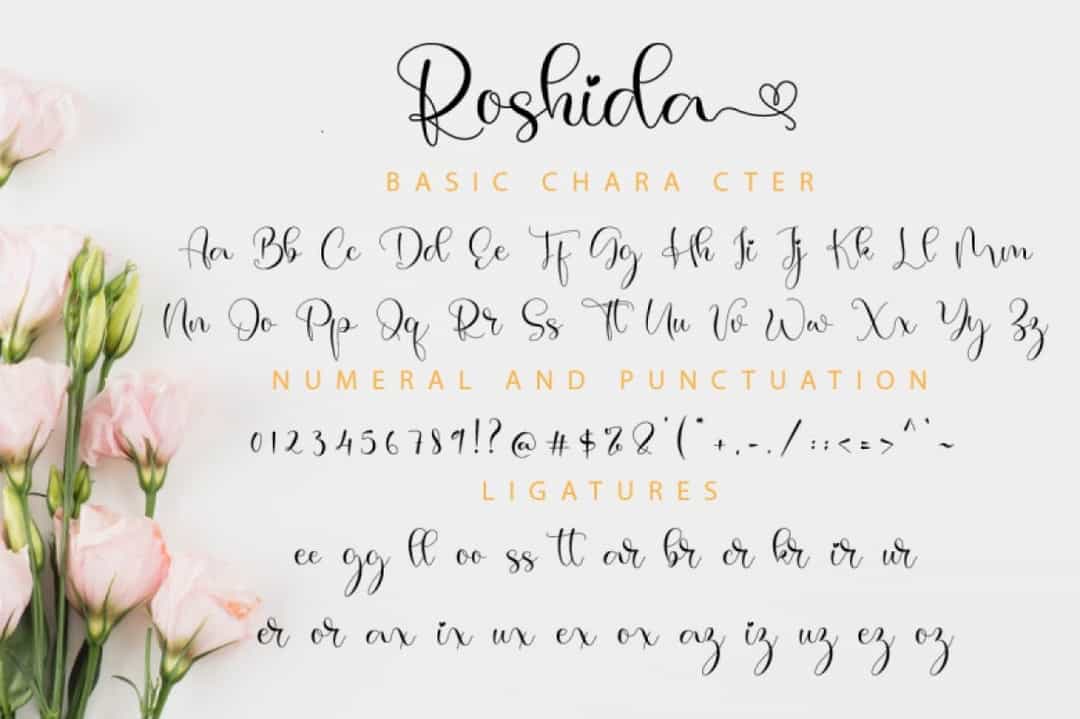 Roshida
BASIC CHARA CTER
Aa Bb Cc Dd Ee Ff Gg Hh Ii Jj Kk Ll Mm
Nn Oo Pp Qq Rr Ss Tt Uu Vv Ww Xx Yy Zz
NUMERAL AND PUNCTUATION
0123456789!?@#$%&'(*+,-./:;<=>^`~
LIGATURES
ee gg ll oo ss tt ar br cr kr ir ur
er or ax ix ux ex ox az iz uz ez oz